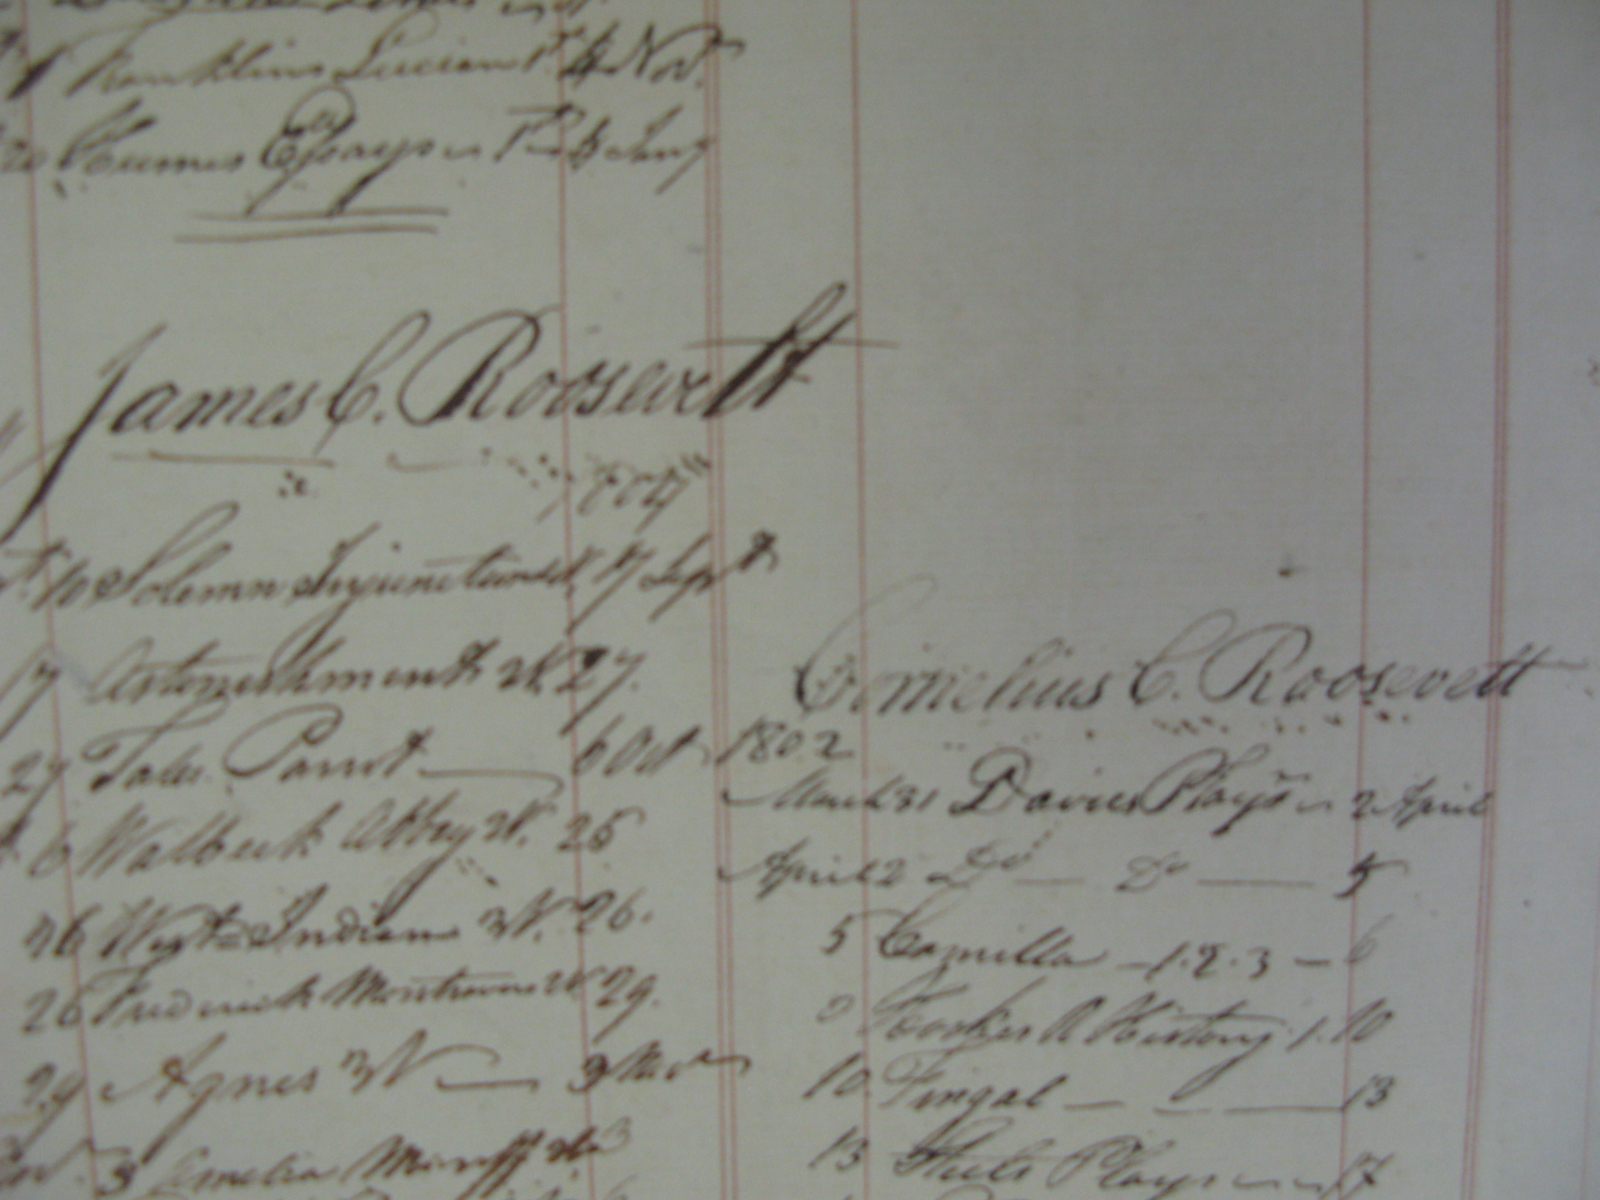 Franklins Lucian 1. 4 Nov.
20 Humes Essays
James C. Roosevelt
1804
10 Solemn Injunction 17 Sept
17 Astonishment 27.
27 Tales Parrot 6 Oct
6 Walbeck Abbey 25
26 West Indian W. 26.
26 Frederick W 29.
29 Agnes W 3
3 Amelia
Cornelius C. Roosevelt
1802
March 31 Davies Plays 2 April
April 2 Do — Do — 5
5 Camilla — 1.2.3 — 6
History 1. 10
10 Fingal — 13
13 Plays 17